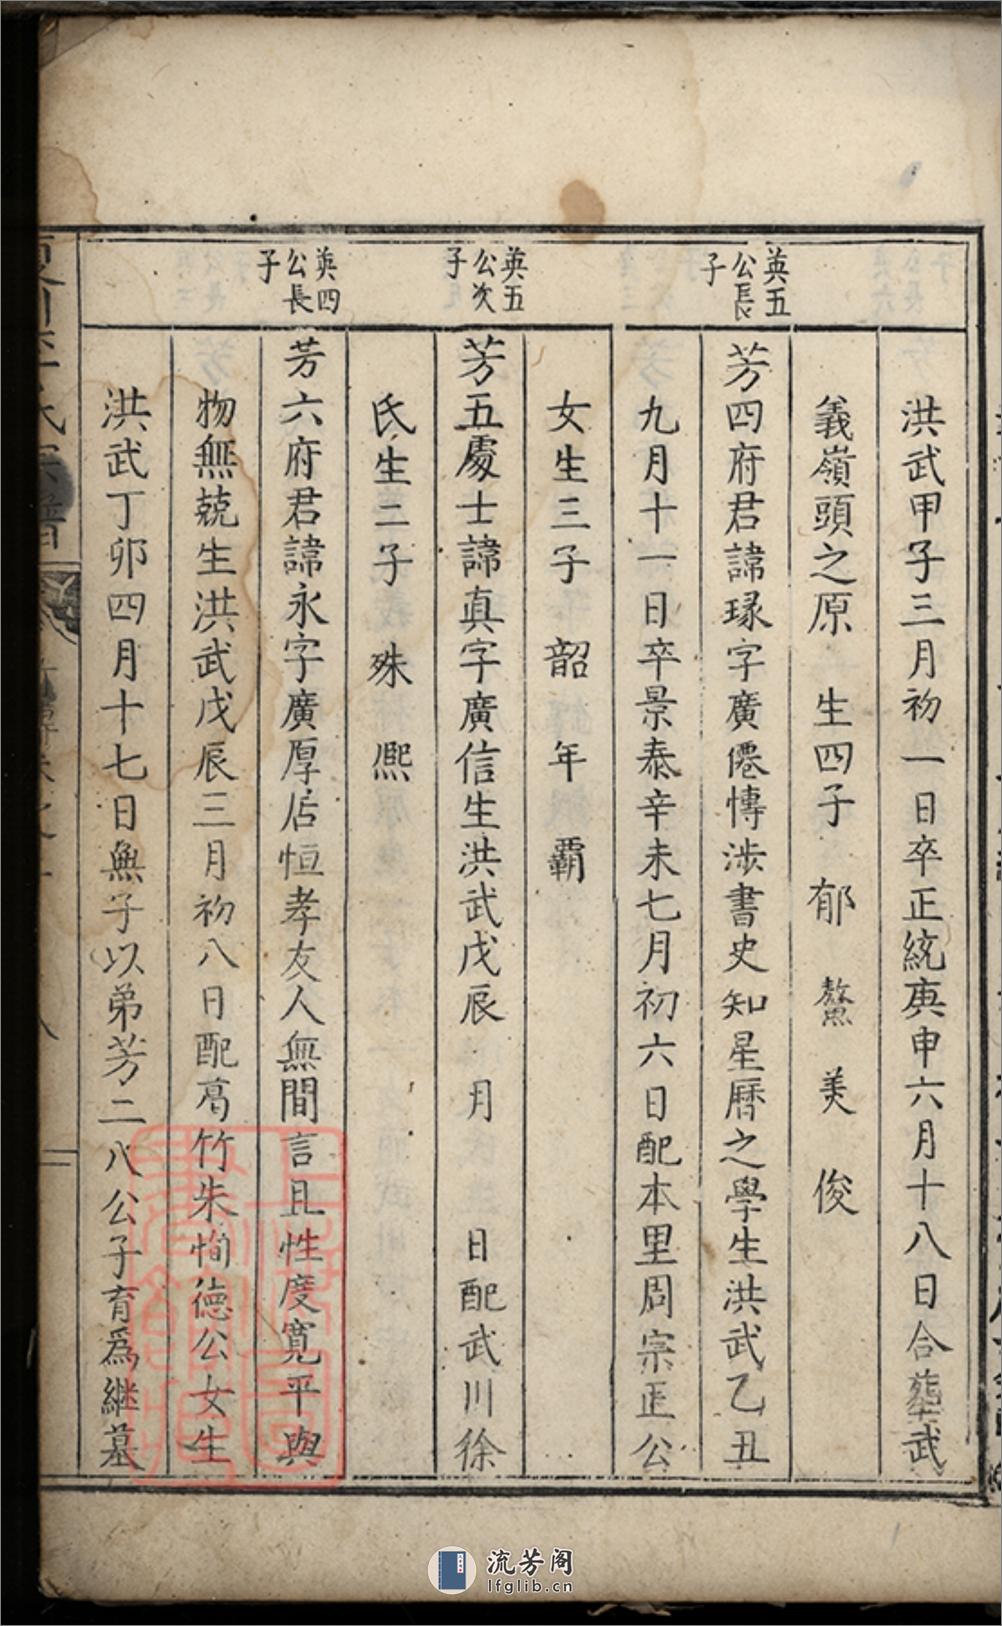 洪武甲子三月初一日卒正統庚申六月十八日合塟武
義嶺頭之原 生四子 郁 鰲 美 俊
英五公長子
芳四府君諱瑑字廣僊慱涉書史知星曆之學生洪武乙丑
九月十一日卒景泰辛未七月初六日配本里周宗正公
女生三子 韶 年 霸
英五公次子
芳五處士諱真字廣信生洪武戊辰 月 日配武川徐
氏生二子 殊 熈
英四公長子
芳六府君諱永字廣厚居恒孝友人無間言且性度寬平與
物無兢生洪武戊辰三月初八日配葛竹朱恂德公女生
洪武丁卯四月十七日無子以弟芳二八公子育爲継墓
流芳阁
lfglib.cn